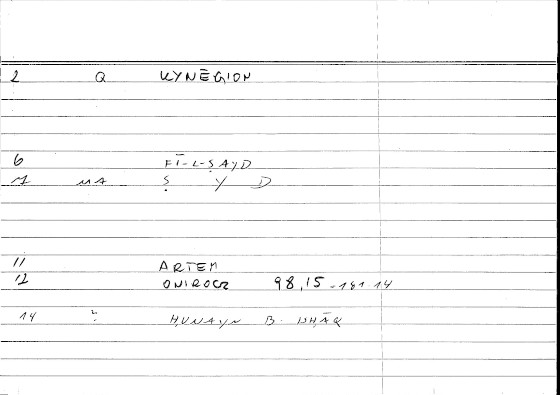 2 Q KYNĒGION
6 FĪ-L-ṢAYD
1 MA Ṣ Y D
11 ARTEM
12 ONIROCR 98,15-181.14
14 ? ḤUNAYN B. ISḤĀQ